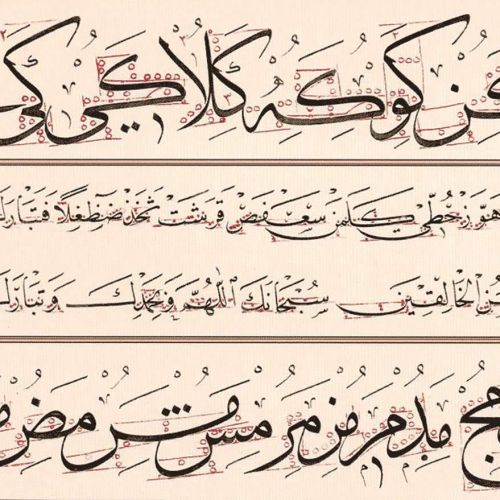 كن كو كه كلا كي كى
هوز حطي كلمن سعفص قرشت ثخذ ضظغلا فتبارك
الخالقين سبحانك اللهم وبحمدك وتبارك
مج مد مر مر مس